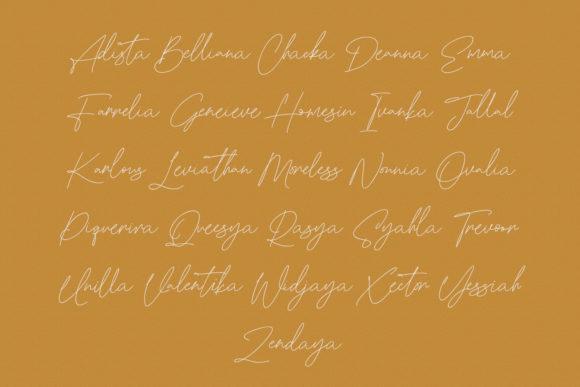 Adista Belliana Chacka Deanna Emma
Farrelia Geneieve Homesin Ivanka Jallal
Karlous Leviathan Moreless Nounia Ovalia
Piquerira Queesya Rasya Syahla Trevoor
Unilla Valentika Widjaya Xector Yessiah
Zendaya